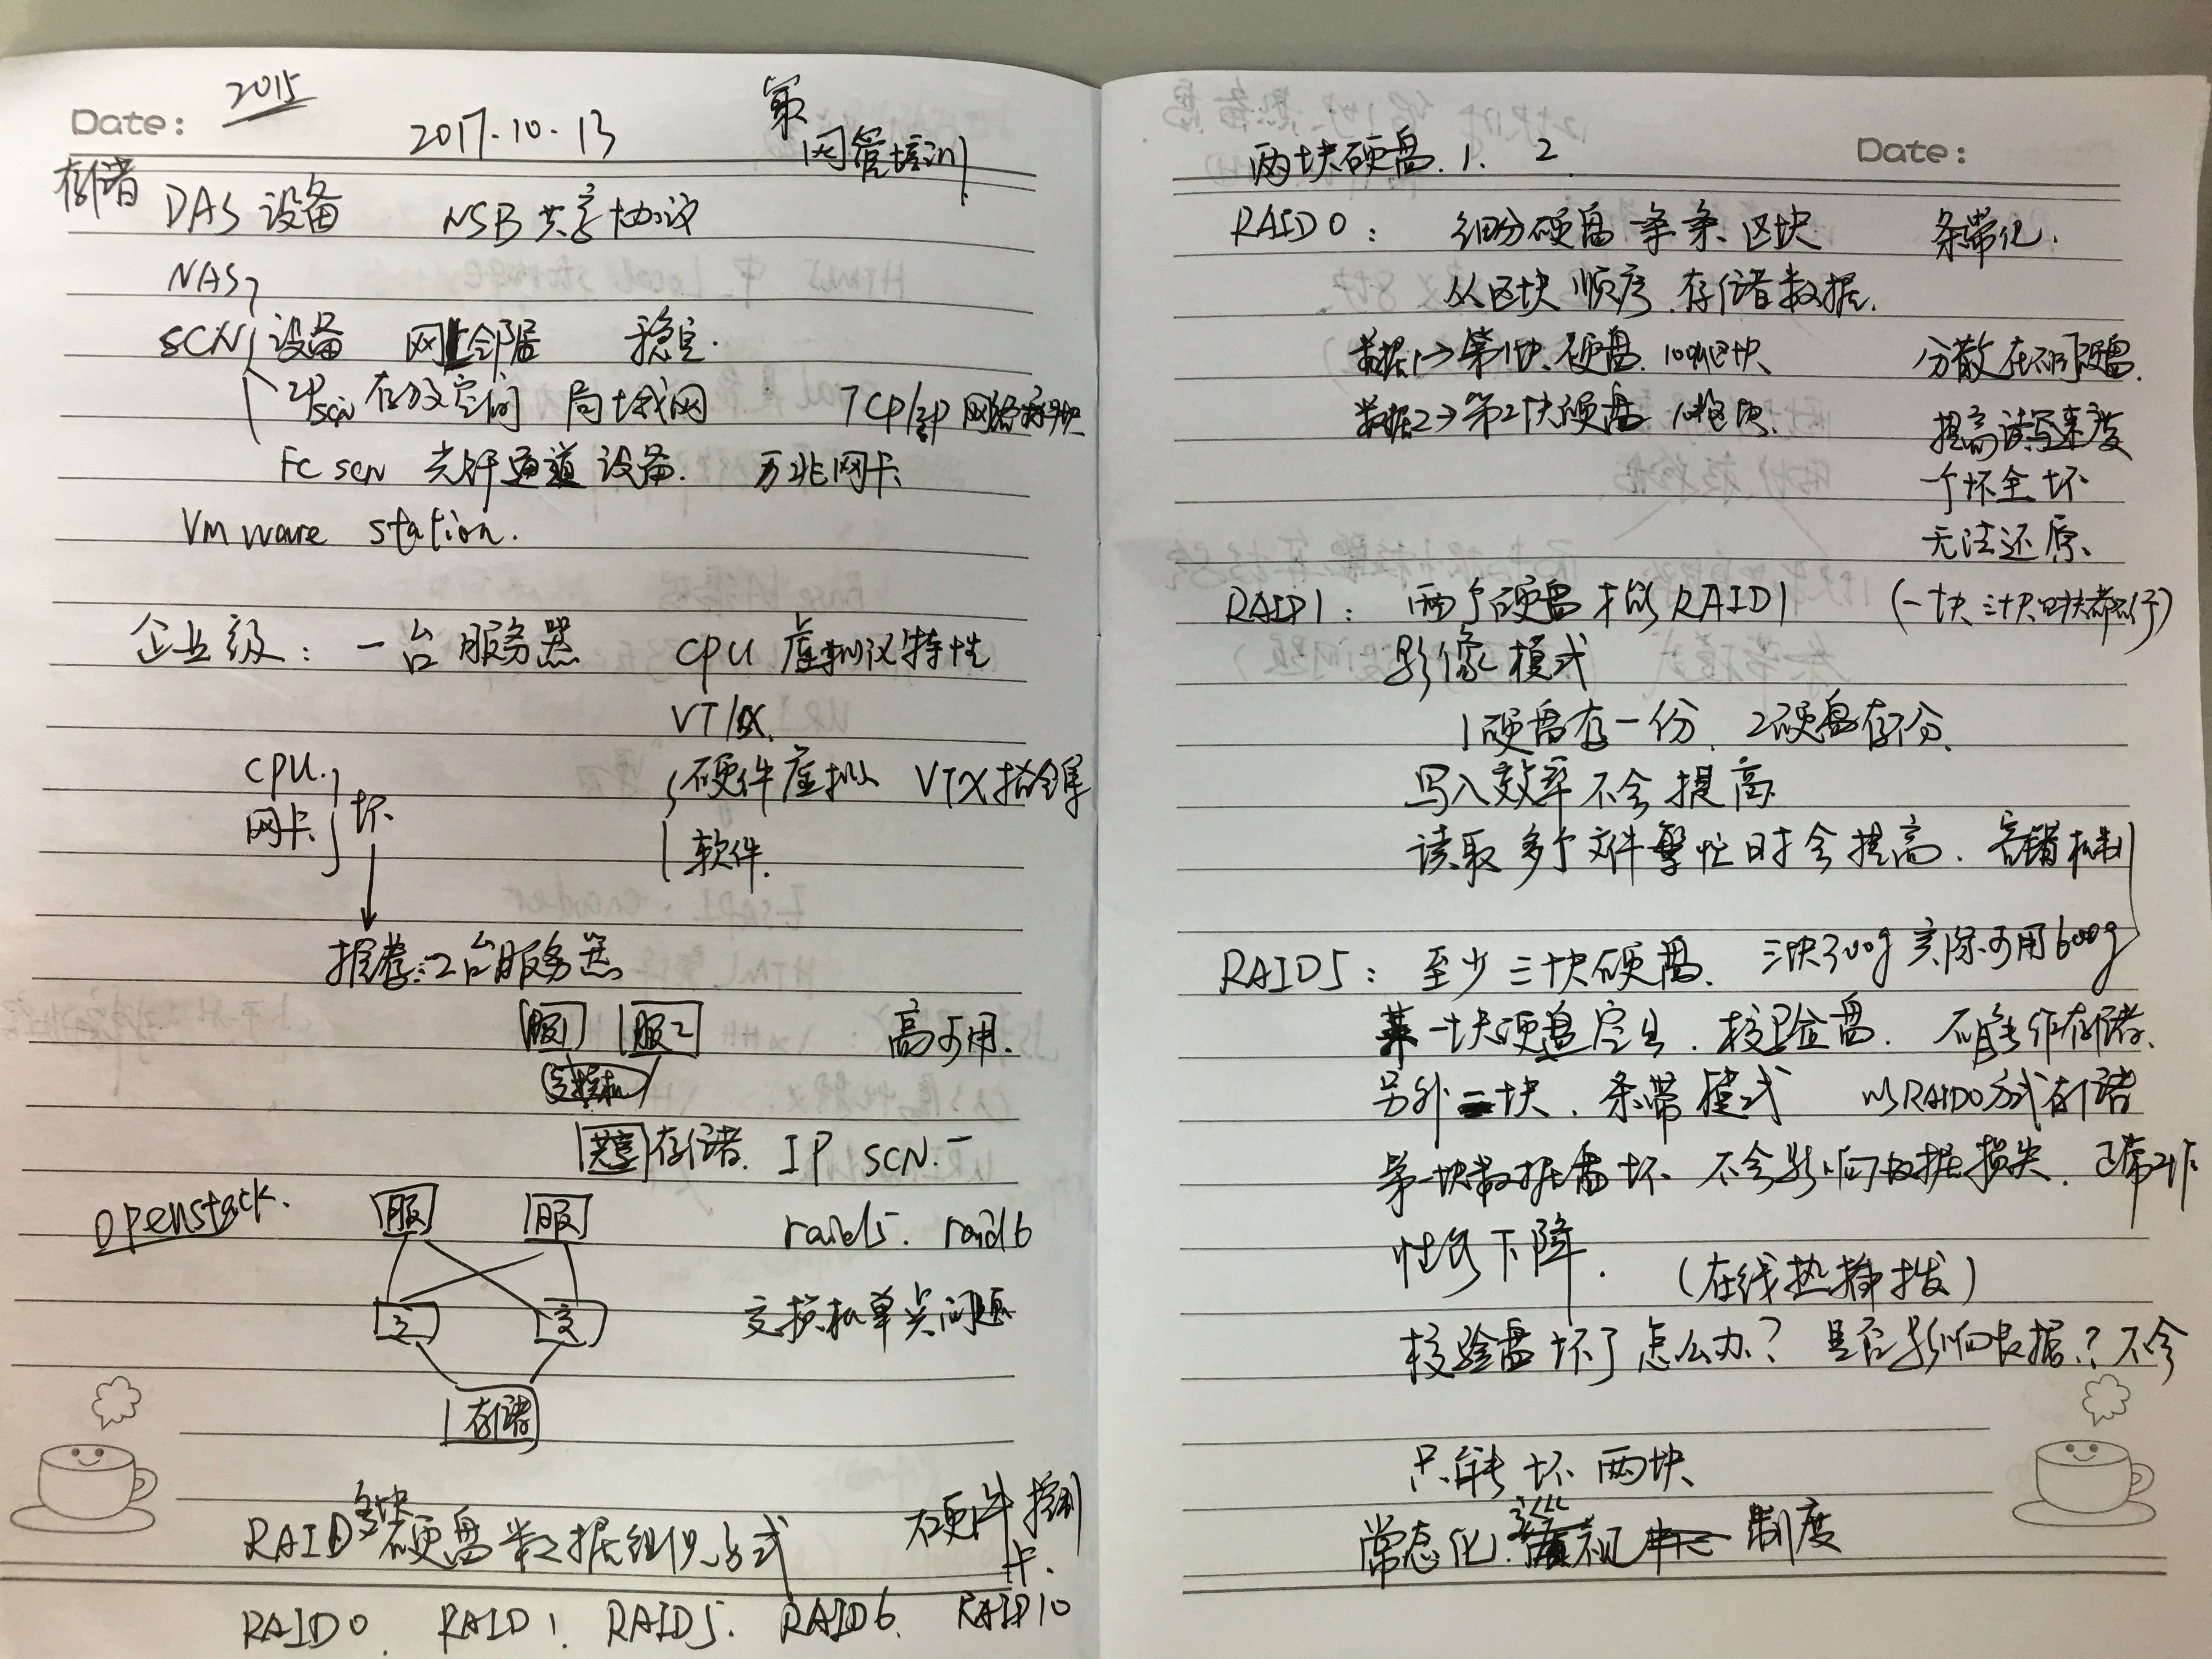 Date: 2015
2017.10.13
网管培训
存储
DAS 设备 NSB 共享协议
NAS
SCN 设备 网上邻居 稳定.
IP scn 存放空间 局域网 TCP/IP 网络
FC scn 光纤通道设备. 万兆网卡
Vm ware station.
企业级: 一台服务器 CPU 虚拟化特性
VT/
CPU. 硬件虚拟 VTX指令集
网卡 坏
软件.
推荐:2台服务器
服1 服2 高可用.
交换机
共享 存储. IP SCN.
openstack. 服 服 raid5. raid6
交 交 交换机单点问题
存储
RAID 多块硬盘数据组织方式 硬件控制卡.
RAID0. RAID1. RAID5. RAID6. RAID10
Date:
两块硬盘. 1. 2
RAID0: 细分硬盘 条条 区块 条带化.
从区块顺序 存储数据.
数据1→第1块 硬盘 100M区块 分散在不同硬盘.
数据2→第2块硬盘 提高读写速度
一个坏全坏
无法还原.
RAID1: 两个硬盘 做 RAID1 (一块 三块 四块都不行)
影像模式
1硬盘存一份. 2硬盘存份.
写入效率不会提高
读取多个文件繁忙时会提高. 容错机制
RAID5: 至少三块硬盘. 三块300g实际可用600g
某一块硬盘定出. 校验盘. 不能作存储.
另外二块. 条带模式 以RAID0方式存储
第一块数据盘坏 不会影响数据损失 正常工作
性能下降. (在线热插拔)
校验盘坏了怎么办? 是否影响数据? 不会
只能坏两块
常态化. 巡视 制度